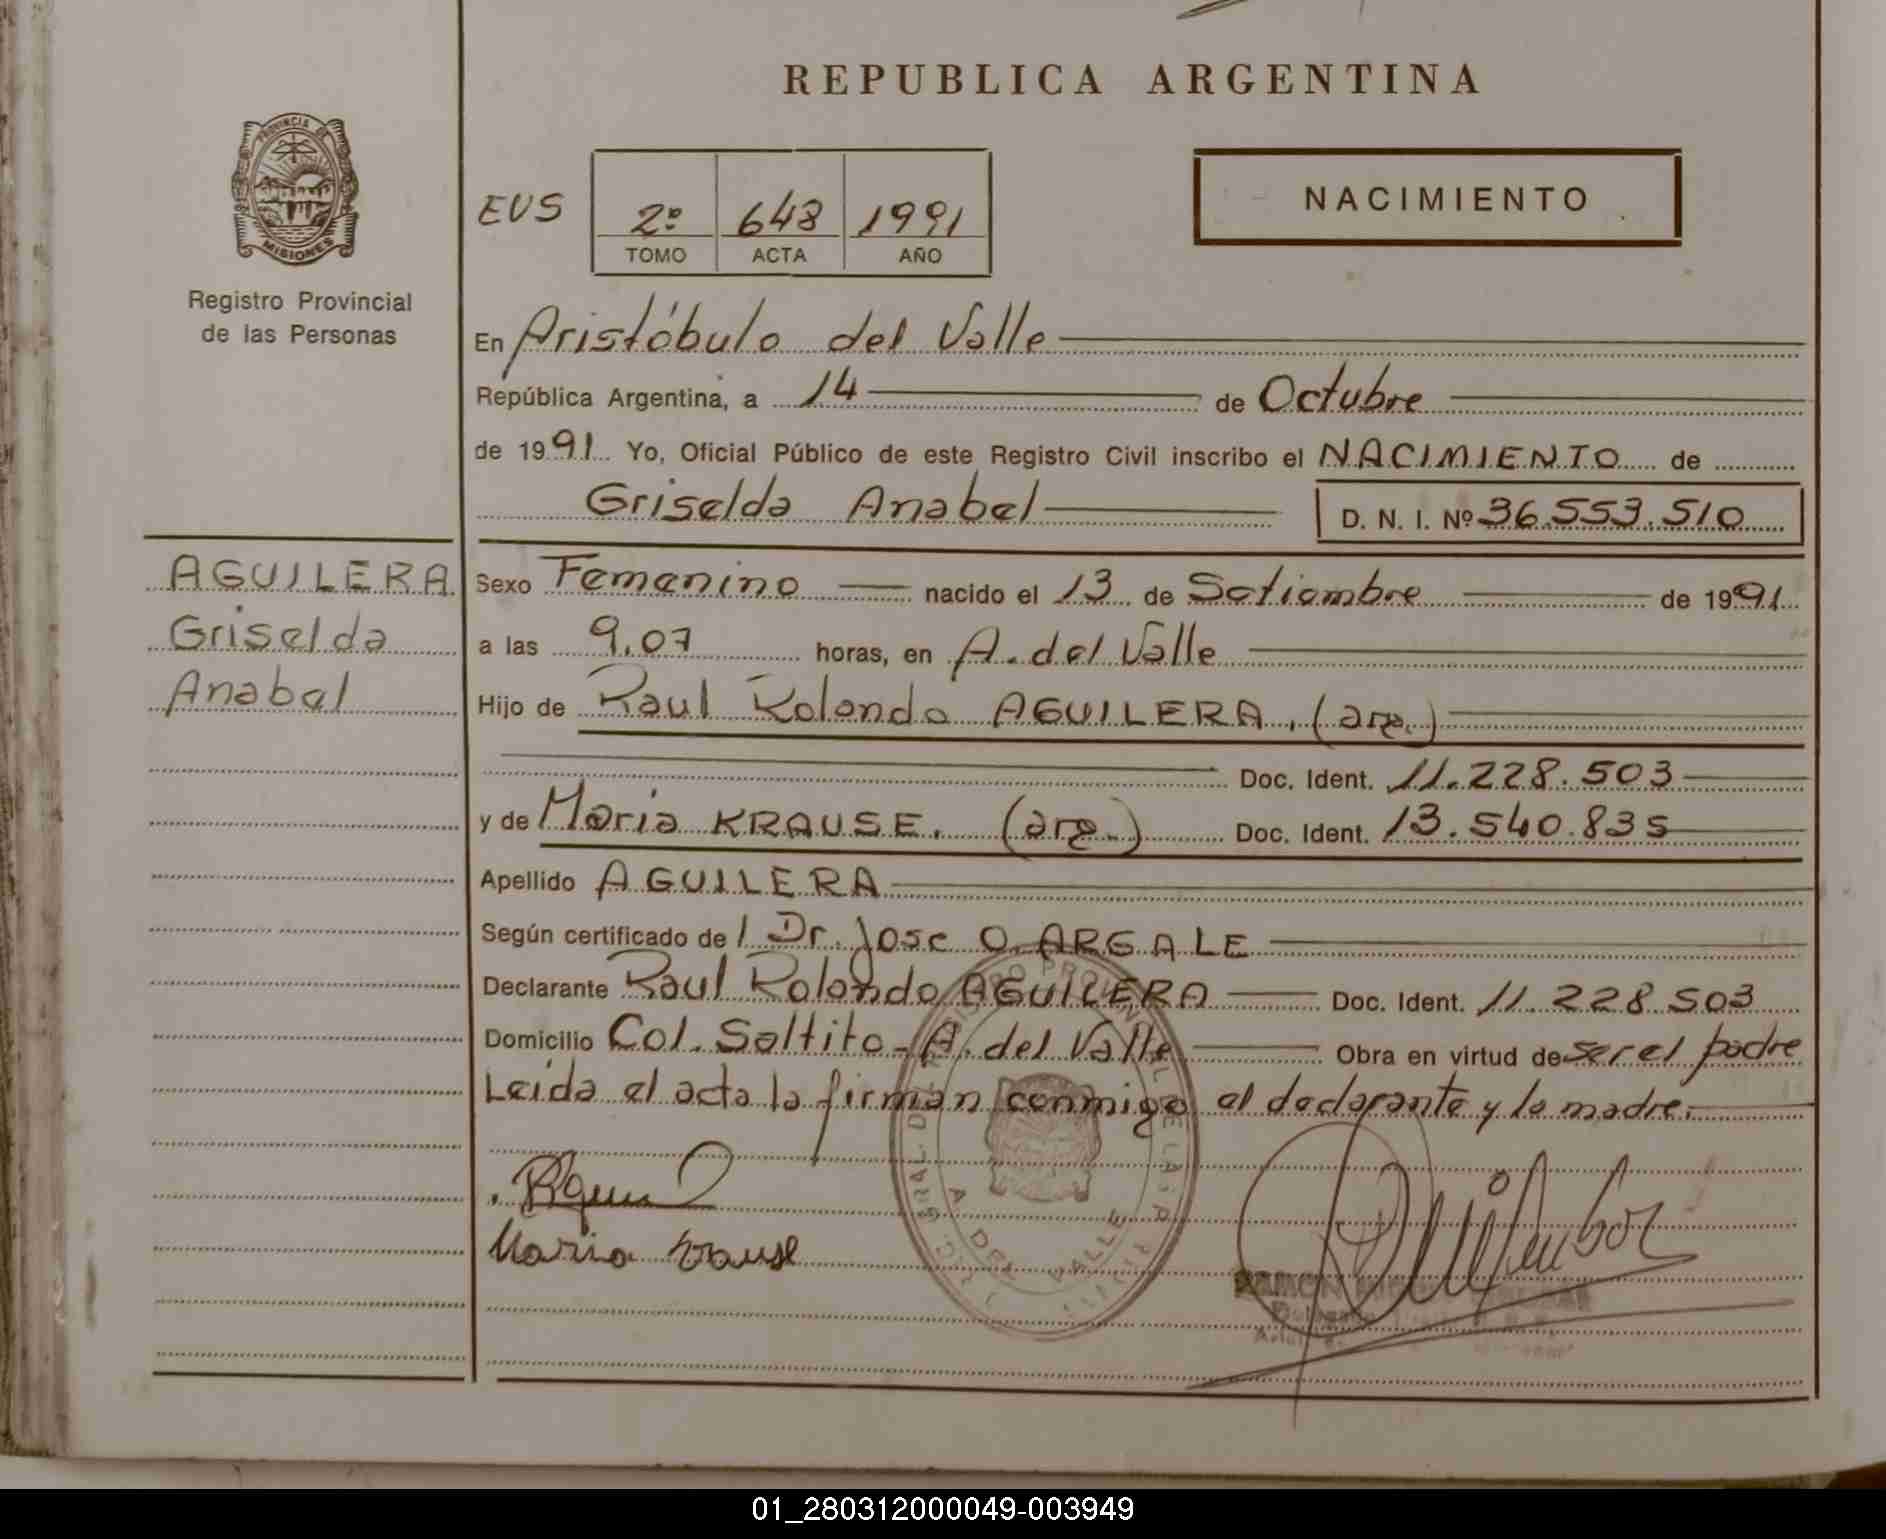 REPUBLICA ARGENTINA
PROVINCIA DE
MISIONES
Registro Provincial
de las Personas
EUS
2º 648 1991
TOMO ACTA AÑO
NACIMIENTO
En Aristóbulo del Valle
República Argentina, a 14 de Octubre
de 1991 Yo, Oficial Público de este Registro Civil inscribo el NACIMIENTO de
Griselda Anabel D. N. I. Nº 36.553.510
AGUILERA
Griselda
Anabel
Sexo Femenino nacido el 13 de Setiembre de 1991
a las 9.07 horas, en A. del Valle
Hijo de Raul Rolando AGUILERA. (arg.)
Doc. Ident. 11.228.503
y de Maria KRAUSE. (arg.) Doc. Ident. 13.540.835
Apellido AGUILERA
Según certificado de l Dr. Jose O. ARGALE
Declarante Raul Rolando AGUILERA Doc. Ident. 11.228503
Domicilio Col. Saltito - A. del Valle Obra en virtud de ser el padre
Leida el acta la firman conmigo el declarante y la madre.
Maria Krause
A. DEL VALLE
RAMON
01_280312000049-003949